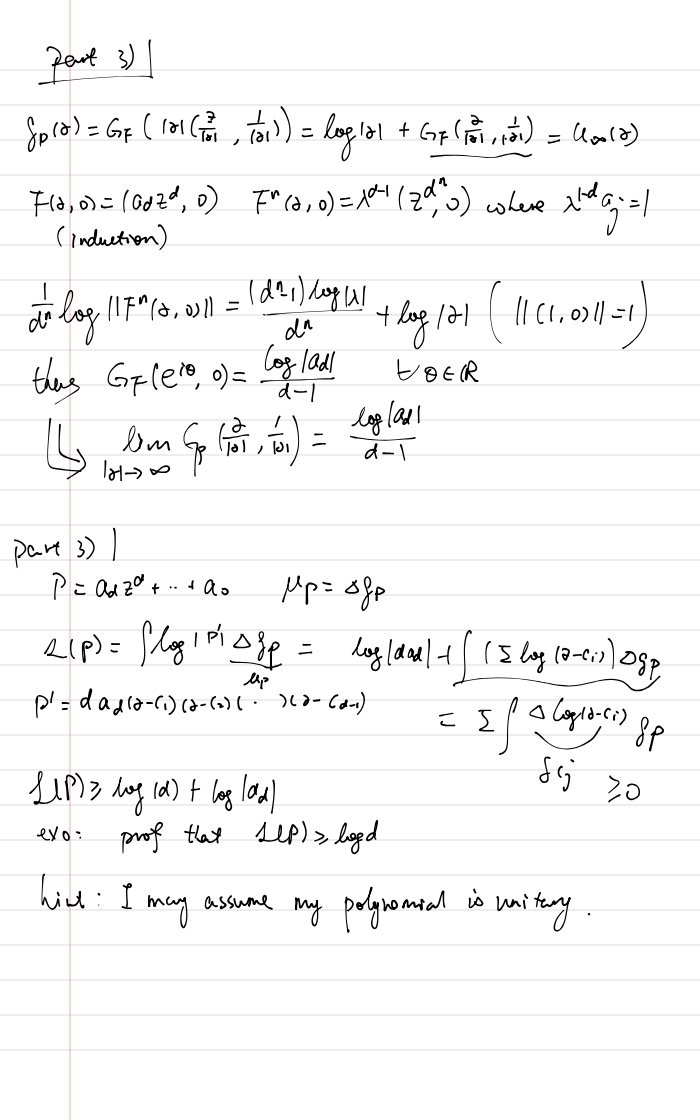 Part 3)
g_P(z) = G_F( |z| (z/|z|, 1/|z|)) = log|z| + G_F(z/|z|, 1/|z|) = u_∞(z)
F(z, 0) = (a_d z^d, 0) F^n(z, 0) = λ^{d-1}(z^{d^n}, 0) where λ^{1-d} a_j = 1
(induction)
1/d^n log ||F^n(z, 0)|| = (d^n-1) log|λ| / d^n + log|z| ( ||(1, 0)|| = 1 )
thus G_F(e^{iθ}, 0) = log|a_d| / d-1 ∀ θ ∈ ℝ
lim_{|z|→∞} G_P(z/|z|, 1/|z|) = log|a_d| / d-1
part 3)
P = a_d z^d + ... + a_0 μ_P = Δ g_P
L(P) = ∫ log|P'| Δ g_P = log|d a_d| + ∫ (Σ log|z-c_i|) Δ g_P
μ_P
P' = d a_d (z-c_1)(z-c_2)( . )(z-c_{d-1})
= Σ ∫ Δ log|z-c_i| g_P
δ_{c_j} ≥ 0
L(P) ≥ log(d) + log|a_d|
exo: prof that L(P) ≥ log d
hint: I may assume my polynomial is unitary.